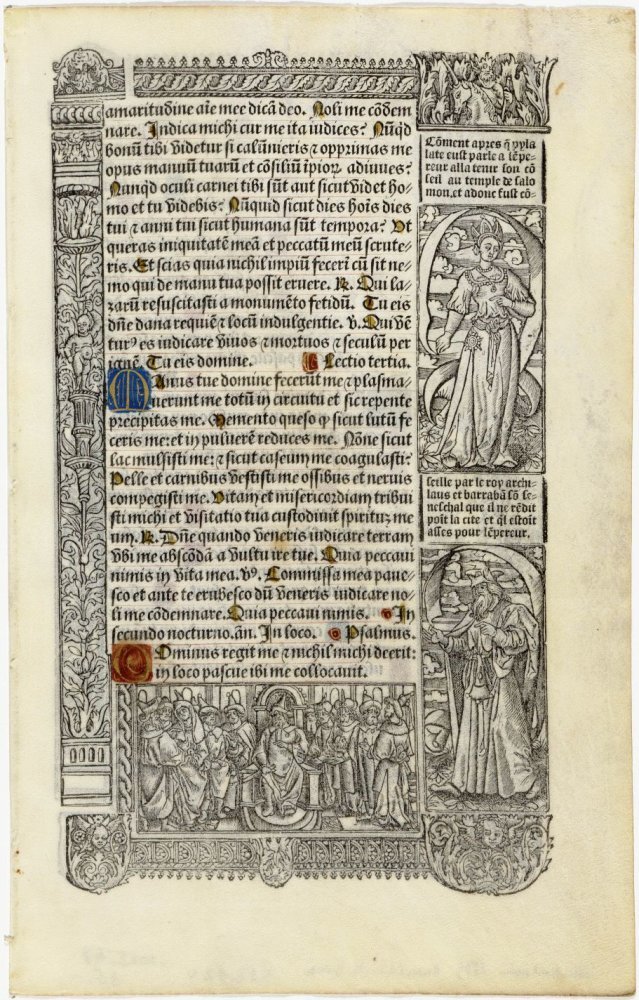 amaritudine aīe mee dicā deo. Noli me cōdem
nare. Indica michi cur me ita iudices? Nūqd
bonū tibi videtur si calūnieris ⁊ opprimas me
opus manuū tuarū et cōsiliū īpioꝝ adiuues?
Nunqd oculi carnei tibi sūt aut sicut videt ho-
mo et tu videbis? Nūquid sicut dies hoīs dies
tui ⁊ anni tui sicut humana sūt tempora? Vt
queras iniquitatē meā et peccatū meū scrute-
ris. Et scias quia nichil impiū fecerī cū sit ne-
mo qui de manu tua possit eruere. ℟. Qui la-
zarū resuscitasti a monumēto fetidū. Tu eis
dn̄e dona requiē ⁊ locū indulgentie. v. Qui vē
turꝰ es iudicare viuos ⁊ mortuos ⁊ seculū per
ignē. Tu eis domine. Lectio tertia.
Manus tue domine fecerūt me ⁊ plasma-
uerunt me totū in circuitu et sic repente
precipitas me. Memento queso ꝙ sicut lutū fe
ceris me: et in puluerē reduces me. Nōne sicut
lac mulsisti me: ⁊ sicut caseum me coagulasti?
Pelle et carnibus vestisti me ossibus et neruis
compegisti me. Vitam et misericordiam tribui
sti michi et visitatio tua custodiuit spiritū me
um. ℟. Dn̄e quando veneris iudicare terram
vbi me abscōdā a vultu ire tue. Quia peccaui
nimis in vita mea. vꝰ. Commissa mea paue-
sco et ante te erubesco dū veneris iudicare no-
li me cōdemnare. Quia peccaui nimis. In
secundo nocturno. an. In loco. Psalmus.
Dominus regit me ⁊ nichil michi deerit:
in loco pascue ibi me collocauit.
Cōment apres q̄ pyla
late eust parle a lēpe-
reur alla tenir son cō
seil au temple de salo
mon. et adonc fust cō-
seille par le roy archi-
laus et barrabā sō se-
neschal que il ne rēdit
poīt la cite et ql estoit
asses pour lēpereur.